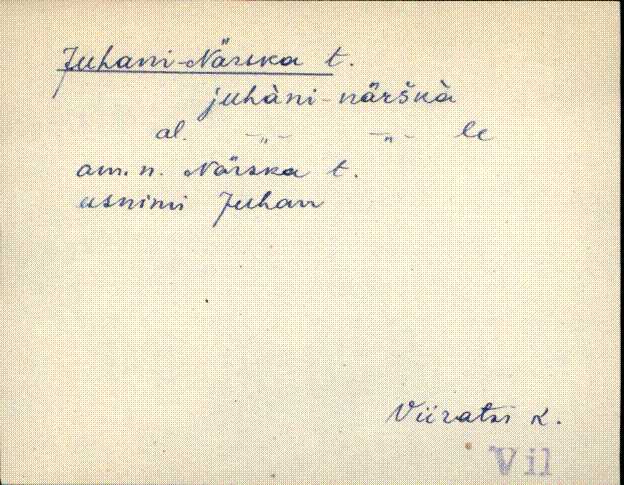 Juhani-Närska t.
juhàni-närškà
al. -„- -„- le
am. n. Närska t.
asnimi Juhan
Viiratsi k.
Vil